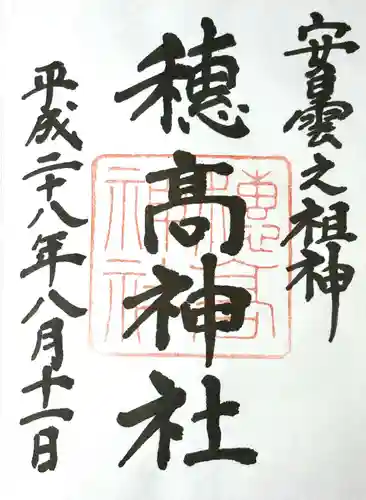 安曇之祖神
穂高神社
平成二十八年八月十一日